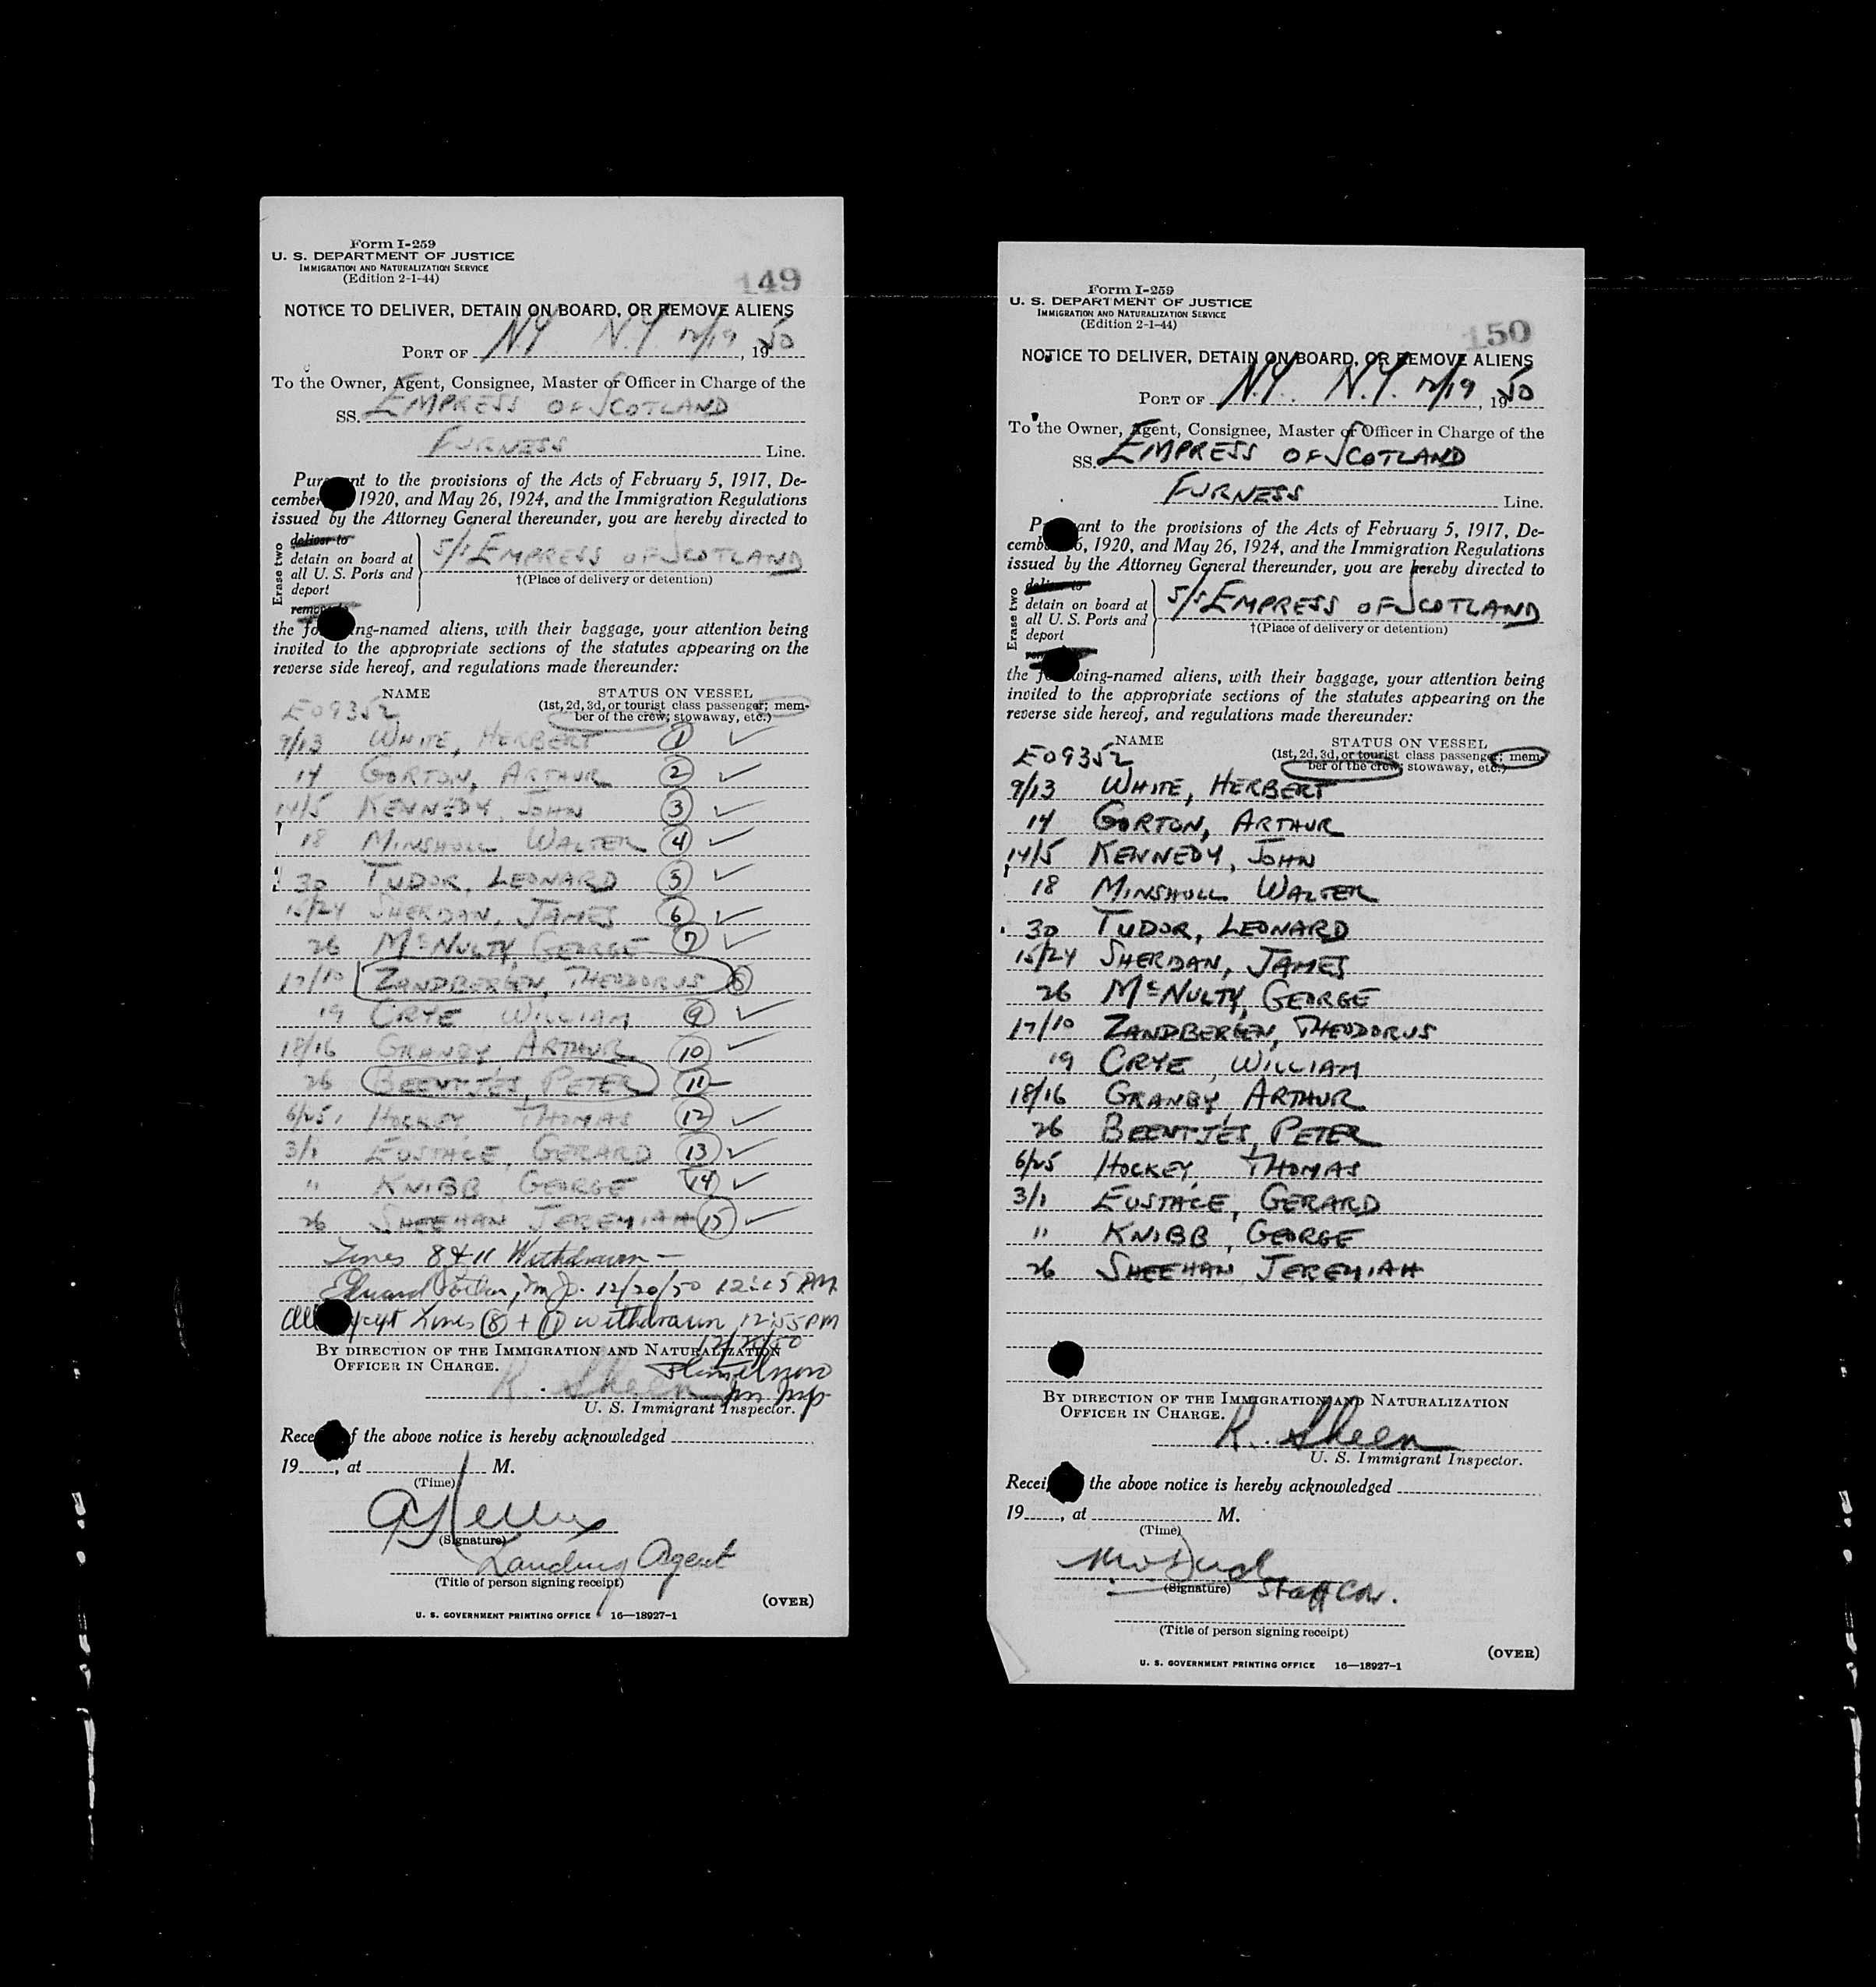 Form I-259
U. S. DEPARTMENT OF JUSTICE
IMMIGRATION AND NATURALIZATION SERVICE
(Edition 2-1-44)
149
NOTICE TO DELIVER, DETAIN ON BOARD, OR REMOVE ALIENS
PORT OF N.Y. N.Y. 12/19, 1950
To the Owner, Agent, Consignee, Master or Officer in Charge of the
SS. EMPRESS OF SCOTLAND
FURNESS Line.
Pur nt to the provisions of the Acts of February 5, 1917, De-
cember 1920, and May 26, 1924, and the Immigration Regulations
issued by the Attorney General thereunder, you are hereby directed to
Erase two
deliver to
detain on board at
all U. S. Ports and
deport
remove to
S/S EMPRESS OF SCOTLAND
†(Place of delivery or detention)
the fo ing-named aliens, with their baggage, your attention being
invited to the appropriate sections of the statutes appearing on the
reverse side hereof, and regulations made thereunder:
NAME STATUS ON VESSEL
(1st, 2d, 3d, or tourist class passenger; mem-
ber of the crew; stowaway, etc.)
E09352
9/13 WHITE, HERBERT 1 ✓
14 GORTON, ARTHUR 2 ✓
14/5 KENNEDY, JOHN 3 ✓
18 MINSHULL WALTER 4 ✓
30 TUDOR, LEONARD 5 ✓
15/24 SHERIDAN, JAMES 6 ✓
26 McNULTY, GEORGE 7 ✓
17/10 ZANDBERGEN, THEODORUS 8
19 CRYE WILLIAM 9 ✓
18/16 GRANBY ARTHUR 10 ✓
26 BEENTJES, PETER 11
6/25 HOCKEY THOMAS 12 ✓
3/1 EUSTACE, GERARD 13 ✓
11 KNIBB, GEORGE 14 ✓
26 SHEEHAN JEREMIAH 15 ✓
Lines 8 & 11 Withdrawn —
Edward 12/20/50 12:15 PM
All xcept Lines 8 + 11 withdrawn 12:55 PM
BY DIRECTION OF THE IMMIGRATION AND NATURALIZATION
OFFICER IN CHARGE.
K. Sheen
U. S. Immigrant Inspector.
Rece f the above notice is hereby acknowledged
19 , at M.
(Time)
(Signature)
Landing Agent
(Title of person signing receipt)
(OVER)
U. S. GOVERNMENT PRINTING OFFICE 16—18927-1
Form I-259
U. S. DEPARTMENT OF JUSTICE
IMMIGRATION AND NATURALIZATION SERVICE
(Edition 2-1-44)
150
NOTICE TO DELIVER, DETAIN ON BOARD, OR REMOVE ALIENS
PORT OF N.Y. N.Y. 12/19, 1950
To the Owner, Agent, Consignee, Master or Officer in Charge of the
SS. EMPRESS OF SCOTLAND
FURNESS Line.
P ant to the provisions of the Acts of February 5, 1917, De-
cemb 6, 1920, and May 26, 1924, and the Immigration Regulations
issued by the Attorney General thereunder, you are hereby directed to
Erase two
deliver to
detain on board at
all U. S. Ports and
deport
S/S EMPRESS OF SCOTLAND
†(Place of delivery or detention)
the f wing-named aliens, with their baggage, your attention being
invited to the appropriate sections of the statutes appearing on the
reverse side hereof, and regulations made thereunder:
NAME STATUS ON VESSEL
(1st, 2d, 3d, or tourist class passenger; mem-
ber of the crew; stowaway, etc.)
E09352
9/13 WHITE, HERBERT
14 GORTON, ARTHUR
14/5 KENNEDY, JOHN
18 MINSHULL WALTER
30 TUDOR, LEONARD
15/24 SHERIDAN, JAMES
26 McNULTY, GEORGE
17/10 ZANDBERGEN, THEODORUS
19 CRYE, WILLIAM
18/16 GRANBY, ARTHUR
26 BEENTJES, PETER
6/25 HOCKEY, THOMAS
3/1 EUSTACE, GERARD
11 KNIBB, GEORGE
26 SHEEHAN JEREMIAH
BY DIRECTION OF THE IMMIGRATION AND NATURALIZATION
OFFICER IN CHARGE.
K. Sheen
U. S. Immigrant Inspector.
Recei the above notice is hereby acknowledged
19 , at M.
(Time)
(Signature) Staff Cdr.
(Title of person signing receipt)
(OVER)
U. S. GOVERNMENT PRINTING OFFICE 16—18927-1